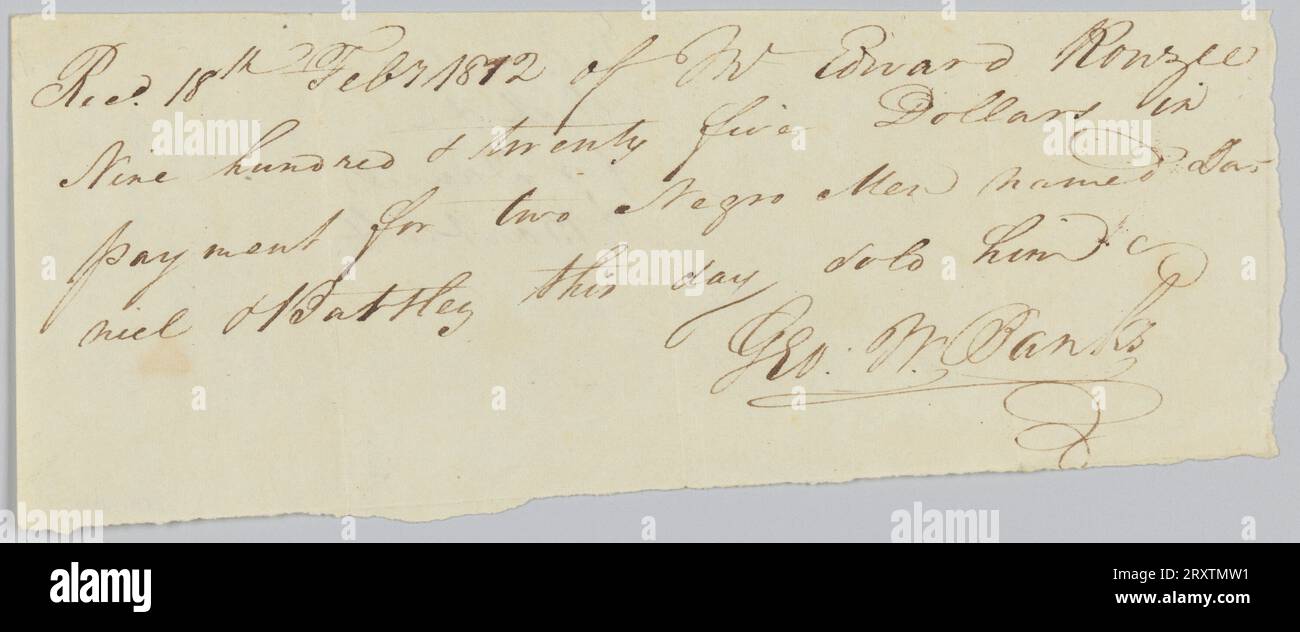 Recd. 18th Feby 1812 of Mr Edward Rouzee
Nine hundred & twenty five Dollars in
payment for two Negro Men named Da-
niel & Battley this day sold him
Geo. W. Banks
alamy
Image ID: 2RXTMW1
www.alamy.com